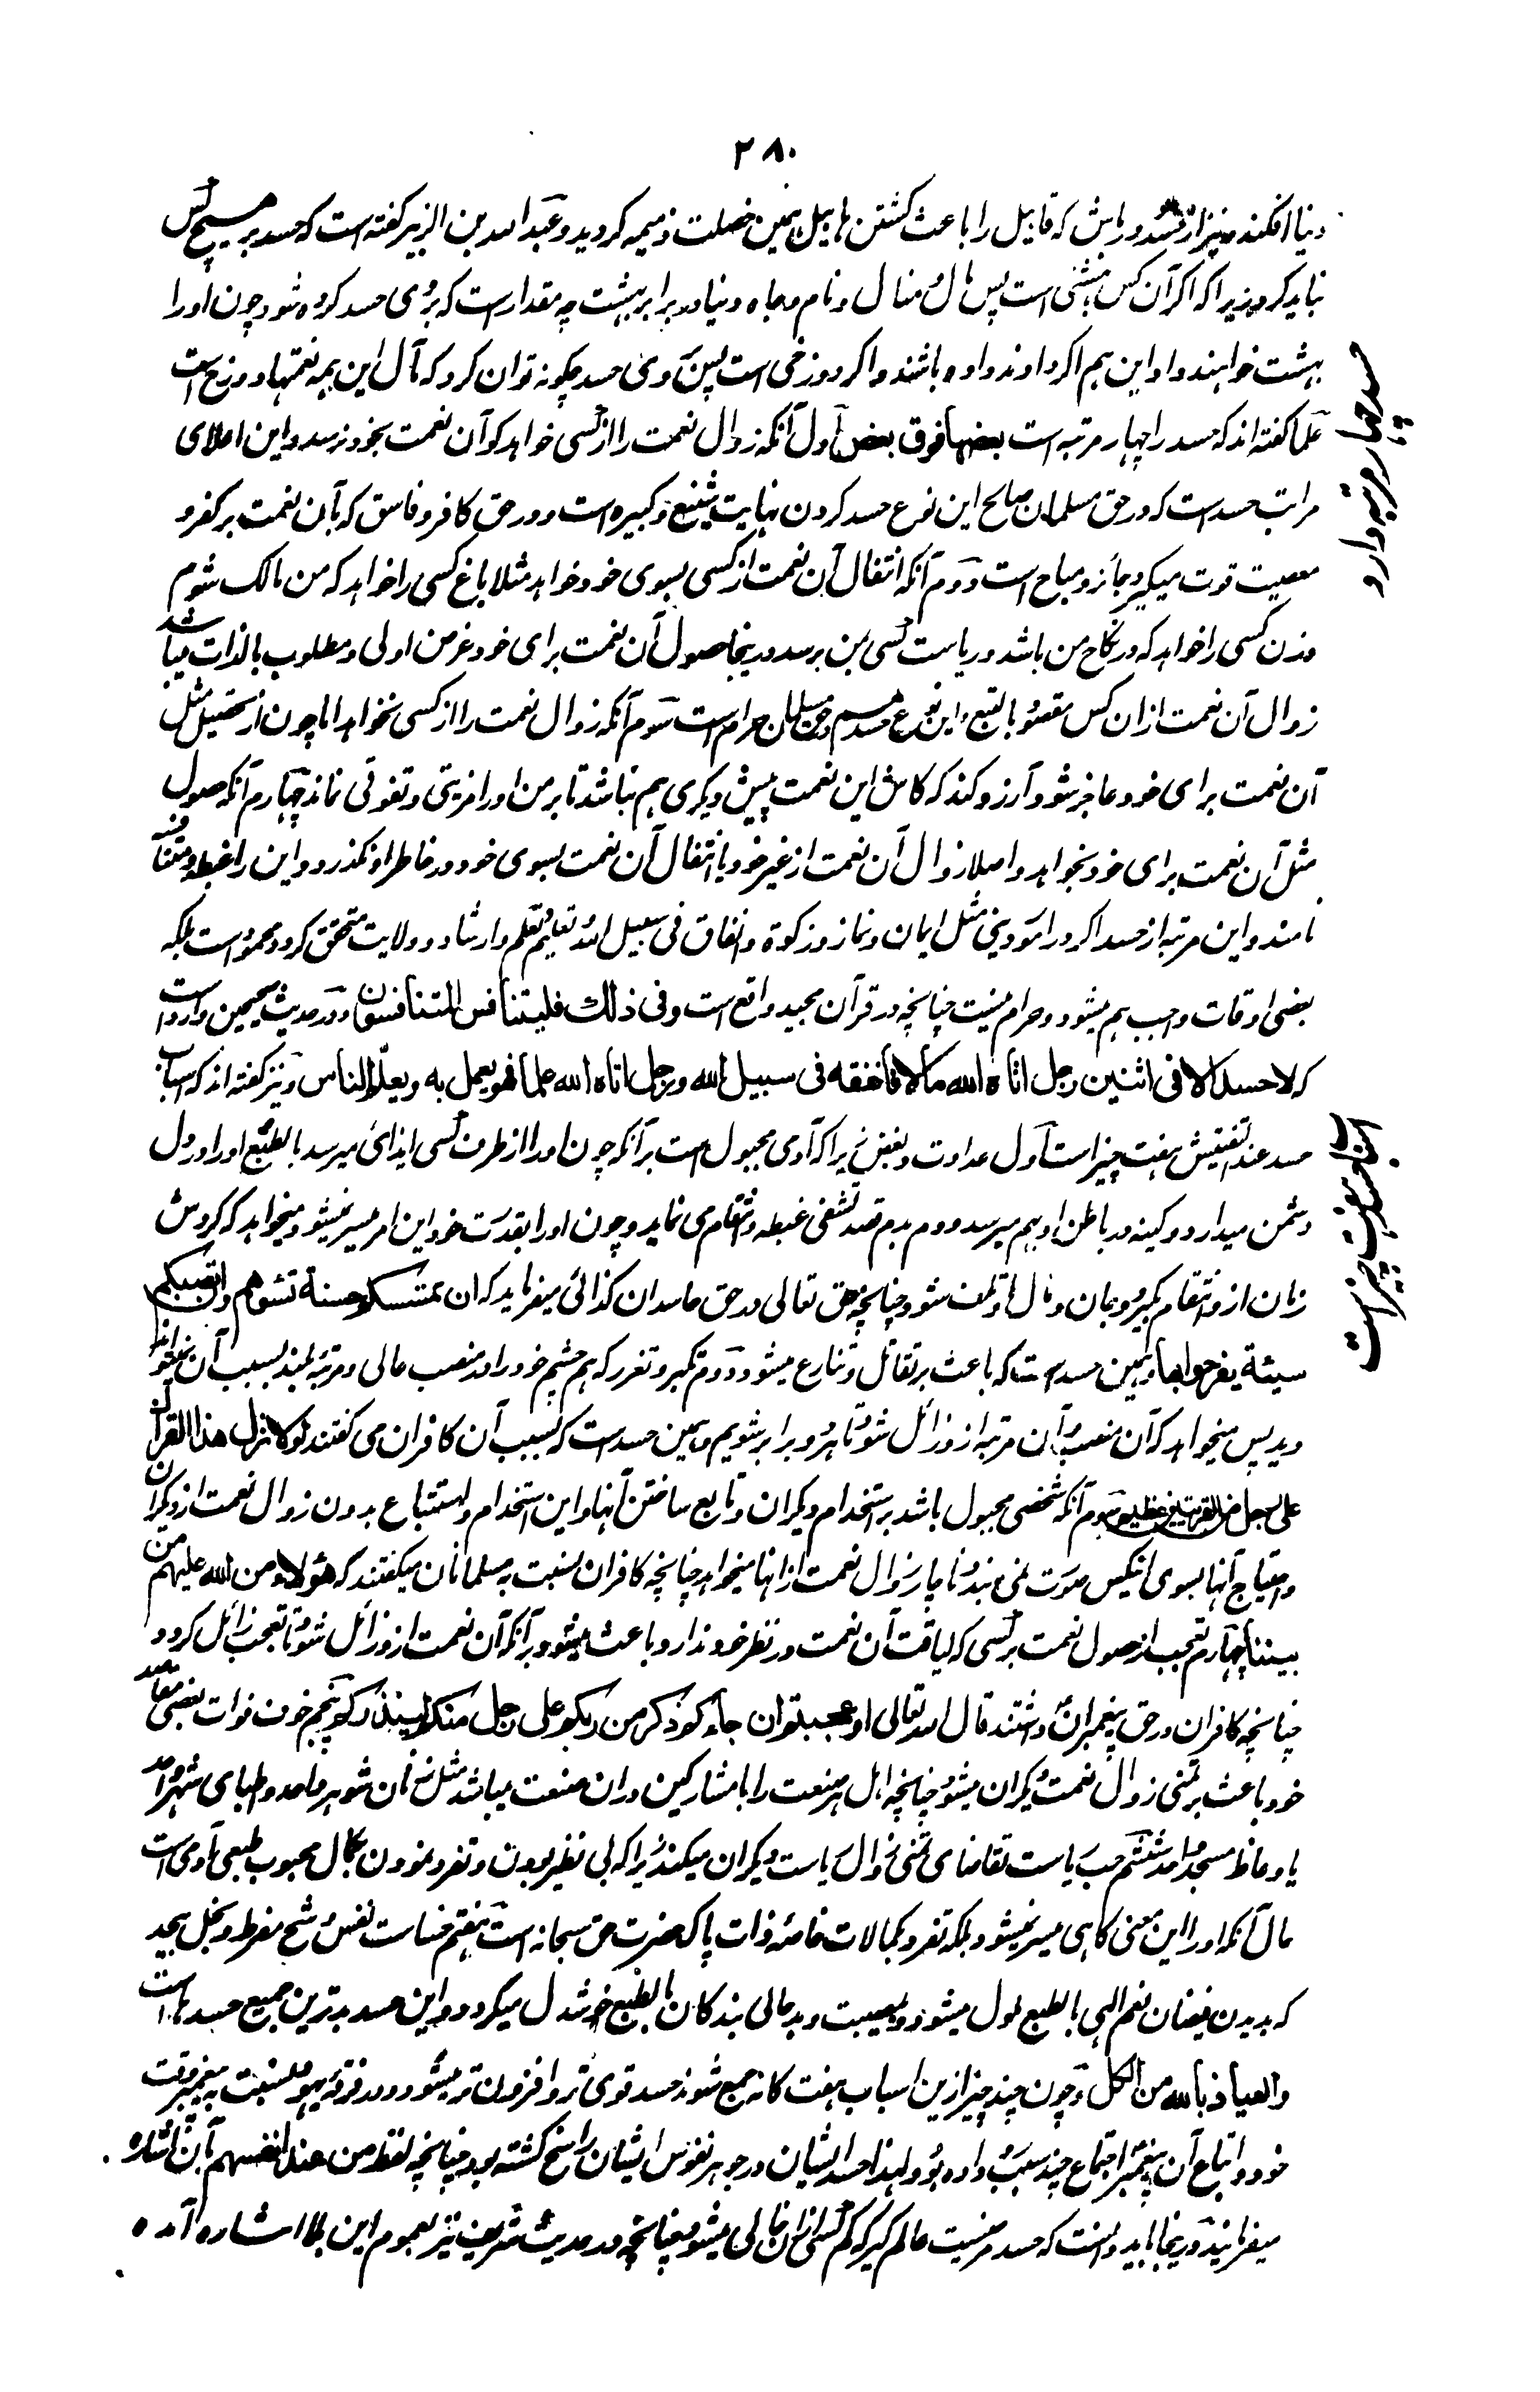 ۲۸۰
دنیا افکنده نیز از حسد ورباش که قابیل را باعث کشتن هابیل همین خصلت ذمیمه گردید و عبدالله بن الزبیر گفته است که حسد بر هیچ کس
نباید کرد زیرا که اگر آن کس بهشتی است پس مال و منال و نام و جاه دنیا در برابر بهشت چه مقدار است که بروی حسد کرده شود چون او را
بهشت خواهند داد این هم اگر دادند داده باشند و اگر دوزخی است پس بر وی حسد چگونه توان کرد که مآل این همه نعمتها دوزخ است
علما گفته اند که حسد را چهار مرتبه است بعضها فوق بعض اول آنکه زوال نعمت را از کسی خواهد گو آن نعمت بخود نرسد و این اعلای
مراتب حسد است که در حق مسلمان صالح این نوع حسد کردن نهایت شنیع و کبیره است و در حق کافر و فاسق که بآن نعمت بر کفر و
معصیت قوت میگیرد جائز و مباح است دوم آنکه انتقال آن نعمت از کسی بسوی خود خواهد مثلا باغ کسی را خواهد که من مالک شوم
و زن کسی را خواهد که در نکاح من باشد و ریاست کسی بمن برسد و درینجا حصول آن نعمت برای خود غرض اولی و مطلوب بالذات میباشد
زوال آن نعمت ازان کس مقصود بالتبع و این نوع حسد هم در حق مسلمان حرام است سوم آنکه زوال نعمت را از کسی نخواهد اما چون از تحصیل مثل
آن نعمت برای خود عاجز شود آرزو کند که کاش این نعمت پیش دیگری هم نباشد تا بر من او را مزیتی و تفوقی نماند چهارم آنکه حصول
مثل آن نعمت برای خود بخواهد و اصلا زوال آن نعمت از غیر خود یا انتقال آن نعمت بسوی خود در خاطر او نگذرد و این را غبطه و منافسه
نامند و این مرتبه از حسد اگر در امور دینی مثل ایمان و نماز و زکوة و انفاق فی سبیل الله و تعلیم و تعلم و ارشاد و ولایت متحقق گردد محمود است بلکه
بعضی اوقات واجب هم میشود و حرام نیست چنانچه در قرآن مجید واقع است وفی ذلك فلیتنافس المتنافسون و در حدیث صحیحین وارد است
که لا حسد الا فی اثنین رجل اتاه الله مالا فانفقه فی سبیل الله و رجل اتاه الله علما فهو یعمل به و یعلمه الناس و نیز گفته اند که اسباب
حسد عند التفتیش هفت چیز است اول عداوت و بغض زیرا که آدمی مجبول است بر آنکه چون او را از طرف کسی ایذائی میرسد بالطبع او را در دل
دشمن میدارد و کینه در باطن او بهم میرسد و دم بدم قصد تشفی غیظ و انتقام می نماید و چون او را بقدرت خود این امر میسر نمیشود میخواهد که گردش
زمان ازو انتقام گیرد و بجان و مال او تلف شود چنانچه حق تعالی در حق حاسدان کذائی میفرماید که ان تمسسکم حسنة تسؤهم و ان تصبکم
سیئة یفرحوا بها و همین حسد است که باعث بر تقاتل و تنازع میشود دوم تکبر و تعزز که هم چشم خود را در منصب عالی و مرتبه بلند بسبب آن نمی تواند
دید پس میخواهد که آن منصب و آن مرتبه ازو زائل شود تا هر دو برابر شویم و همین حسد است که بسبب آن کافران می گفتند لولا نزل هذا القرآن
علی رجل من القریتین عظیم سوم آنکه شخصی مجبول باشد بر استخدام دیگران و تابع ساختن آنها و این استخدام و استتباع بدون زوال نعمت از دیگران
و احتیاج آنها بسوی اینکس صورت نمی بندد ناچار زوال نعمت از آنها میخواهد چنانچه کافران نسبت به مسلمانان میگفتند که هؤلاء من الله علیهم من
بیننا چهارم تعجب از حصول نعمت بر کسی که لیاقت آن نعمت در نظر خود ندارد باعث میشود بر آنکه آن نعمت ازو زائل شود تا تعجب زائل گردد
چنانچه کافران در حق پیغمبران داشتند قال الله تعالی او عجبتم ان جاءکم ذکر من ربکم علی رجل منکم لینذرکم پنجم خوف فوات بعضی مقاصد
خود باعث بر تمنی زوال نعمت دیگران میشود چنانچه اهل هر صنعت را با مشارکین دران صنعت میباشد مثل زنان شوهر واحد و اطبای شهر واحد
یا وعاظ مسجد واحد ششم حب ریاست تقاضای تمنی زوال ریاست دیگران میکند زیرا که بی نظیر بودن و تفرد نمودن بکمال محبوب طبعی آدمی است
حال آنکه او را این معنی گاهی میسر نمیشود بلکه تفرد بکمالات خاصه ذات پاک حضرت حق سبحانه است هفتم خساست نفس و شح مفرط و بخل بیحد
که بدیدن فیضان نعم الهی بالطبع ملول میشود و بمصیبت و بدحالی بندگان بالطبع خوشدل میگردد و این حسد بدترین جمیع حسدها است
والعیاذ بالله من الکل و چون چند چیز ازین اسباب هفت گانه جمع شوند حسد قوی تر و افزون تر میشود و در فرقه یهود به نسبت پیغمبر وقت
خود و اتباع آن پیغمبر اجتماع چند سبب رو داده بود و لهذا حسد ایشان در جوهر نفوس ایشان راسخ گشته بود چنانچه لفظ من عند انفسهم بآن اشاره
میفرمایند و درینجا باید دانست که حسد مرضیست عالم گیر که کم کسی ازان خالی میشود چنانچه در حدیث شریف نیز بعموم این بلا اشاره آمده
حسد چهار مرتبه دارد
اسباب حسد هفت چیز است